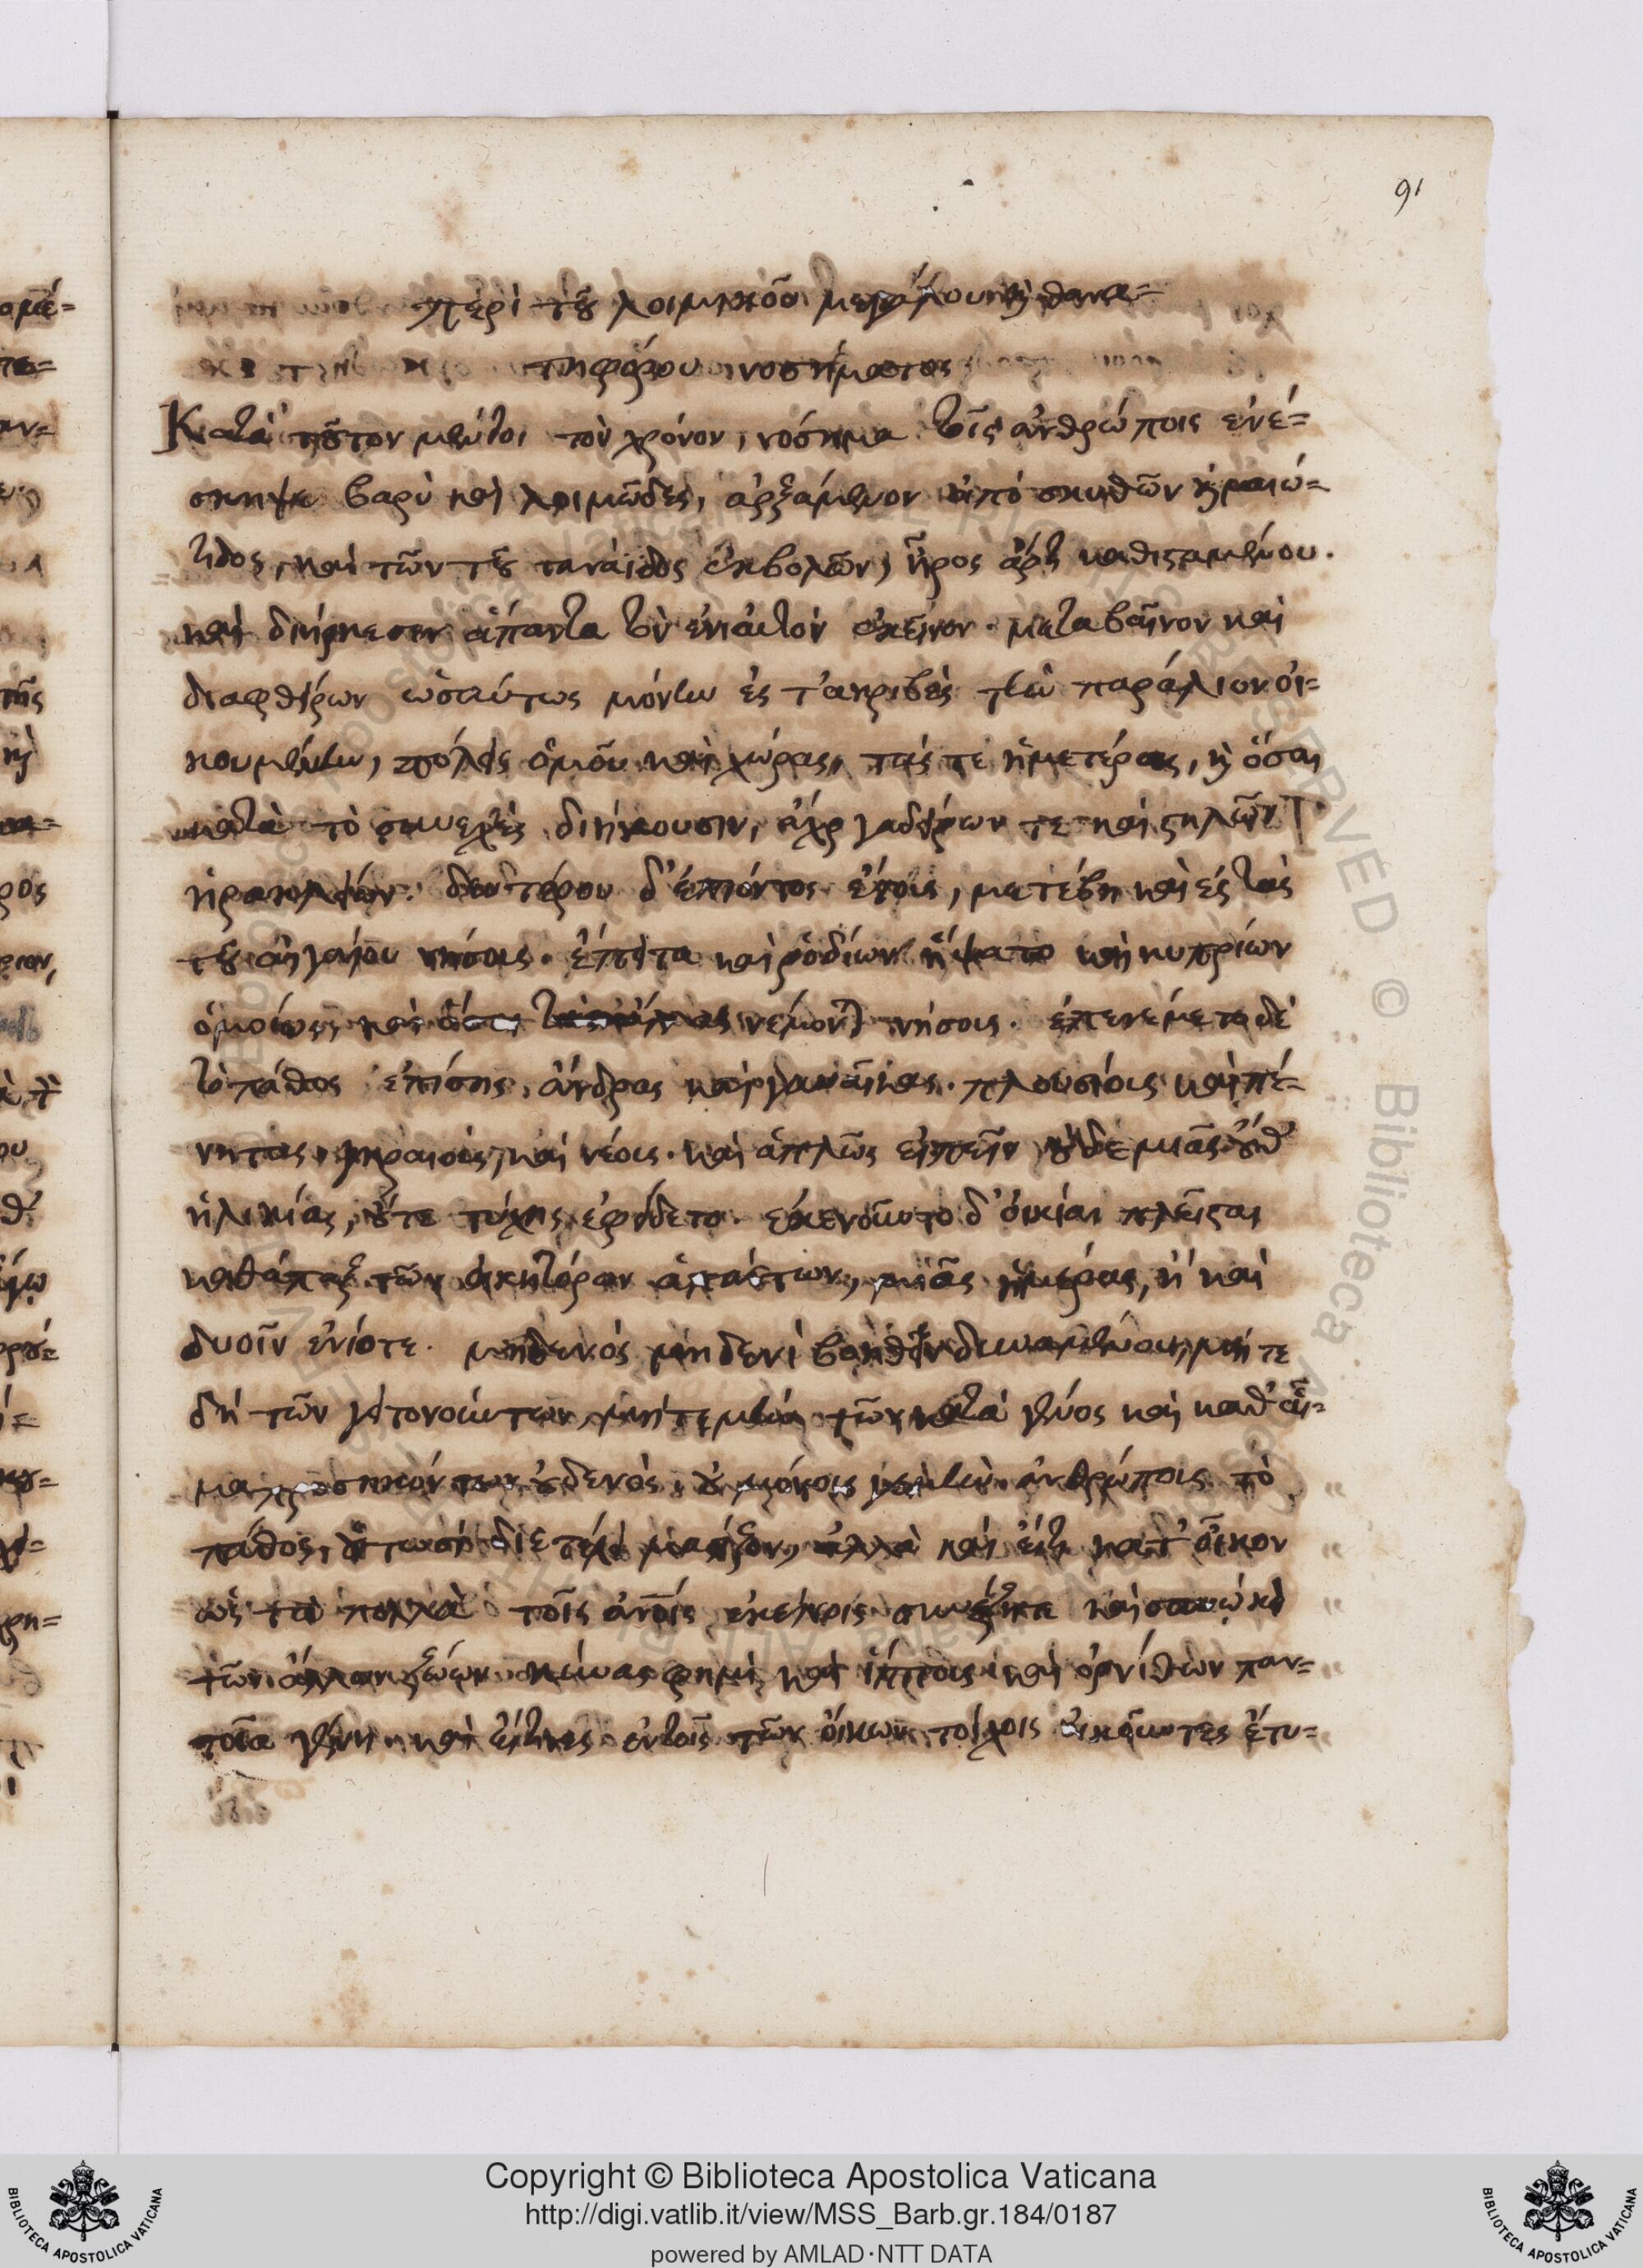 91
περὶ τοῦ λοιμικοῦ μεγάλου καὶ θανα=
τηφόρου νοσήματος
Κατὰ τοῦτον μέντοι τὸν χρόνον, νόσημα τοῖς ἀνθρώποις ἐνέ=
σκηψε βαρὺ καὶ λοιμῶδες, ἀρξάμενον ἀπὸ σκυθῶν καὶ μαιώ=
τιδος, καὶ τῶν τοῦ ταναΐδος ἐκβολῶν, ἦρος ἄρτι καθισταμένου.
καὶ διήρκεσεν ἅπαντα τὸν ἐνιαυτὸν ἐκεῖνον. μεταβαῖνον καὶ
διαφθείρων ὡσαύτως μόνην ἐς τ' ἀκριβὲς τὴν παράλιον οἰ=
κουμένην, πόλεις ὁμοῦ καὶ χώρας, τάς τε ἡμετέρας, καὶ ὅσαι
κατὰ τὸ συνεχὲς διήκουσιν, ἄχρι γαδείρων τε καὶ στηλῶν τῶν
ἡρακλείων. δευτέρου δ' ἐπιόντος ἔτους, μετέβη καὶ ἐς τὰς
τοῦ αἰγαίου νήσους. ἔπειτα καὶ ῥοδίων ἥψατο καὶ κυπρίων
ὁμοίως, καὶ ὅσοι τὰς ἄλλας νέμονται νήσους. ἐπενέμετο δὲ
τὸ πάθος ἐπίσης, ἄνδρας καὶ γυναῖκας. πλουσίους καὶ πέ=
νητας, γηραιοὺς, καὶ νέους. καὶ ἁπλῶς εἰπεῖν οὐδεμιᾶς οὔθ'
ἡλικίας, οὔτε τύχης ἐφείδετο. ἐκενοῦντο δ' οἰκίαι πλεῖσται
καθάπαξ τῶν οἰκητόρων ἁπάντων, μιᾶς ἡμέρας, ἢ καὶ
δυοῖν ἐνίοτε. μηδενὸς μηδενὶ βοηθεῖν δυναμένου, μήτε
δὴ τῶν γειτονούντων, μήτε μὴν τῶν κατὰ γένος καὶ καθ' αἷ=
μα προσηκόντων οὐδενὸς. οὐ μόνοις γε μὴν ἀνθρώποις τὸ
πάθος, οὑτωσὶ διετέλει μαστίζον, ἀλλὰ καὶ εἴ τι κατ' οἶκον
ὡς τὰ πολλὰ τοῖς ἀνοις ἐκείνοις συνέζη τε καὶ συνῴκει
τῶν ἄλλων ζώων. κύνας φημὶ, καὶ ἵππους καὶ ὀρνίθων παν=
τοῖα γένη. καὶ εἴ τινες ἐν τοῖς τῶν οἴκων τοίχοις οἰκοῦντες ἔτυ=
Copyright © Biblioteca Apostolica Vaticana
http://digi.vatlib.it/view/MSS_Barb.gr.184/0187
powered by AMLAD·NTT DATA
BIBLIOTECA APOSTOLICA VATICANA
BIBLIOTECA APOSTOLICA VATICANA